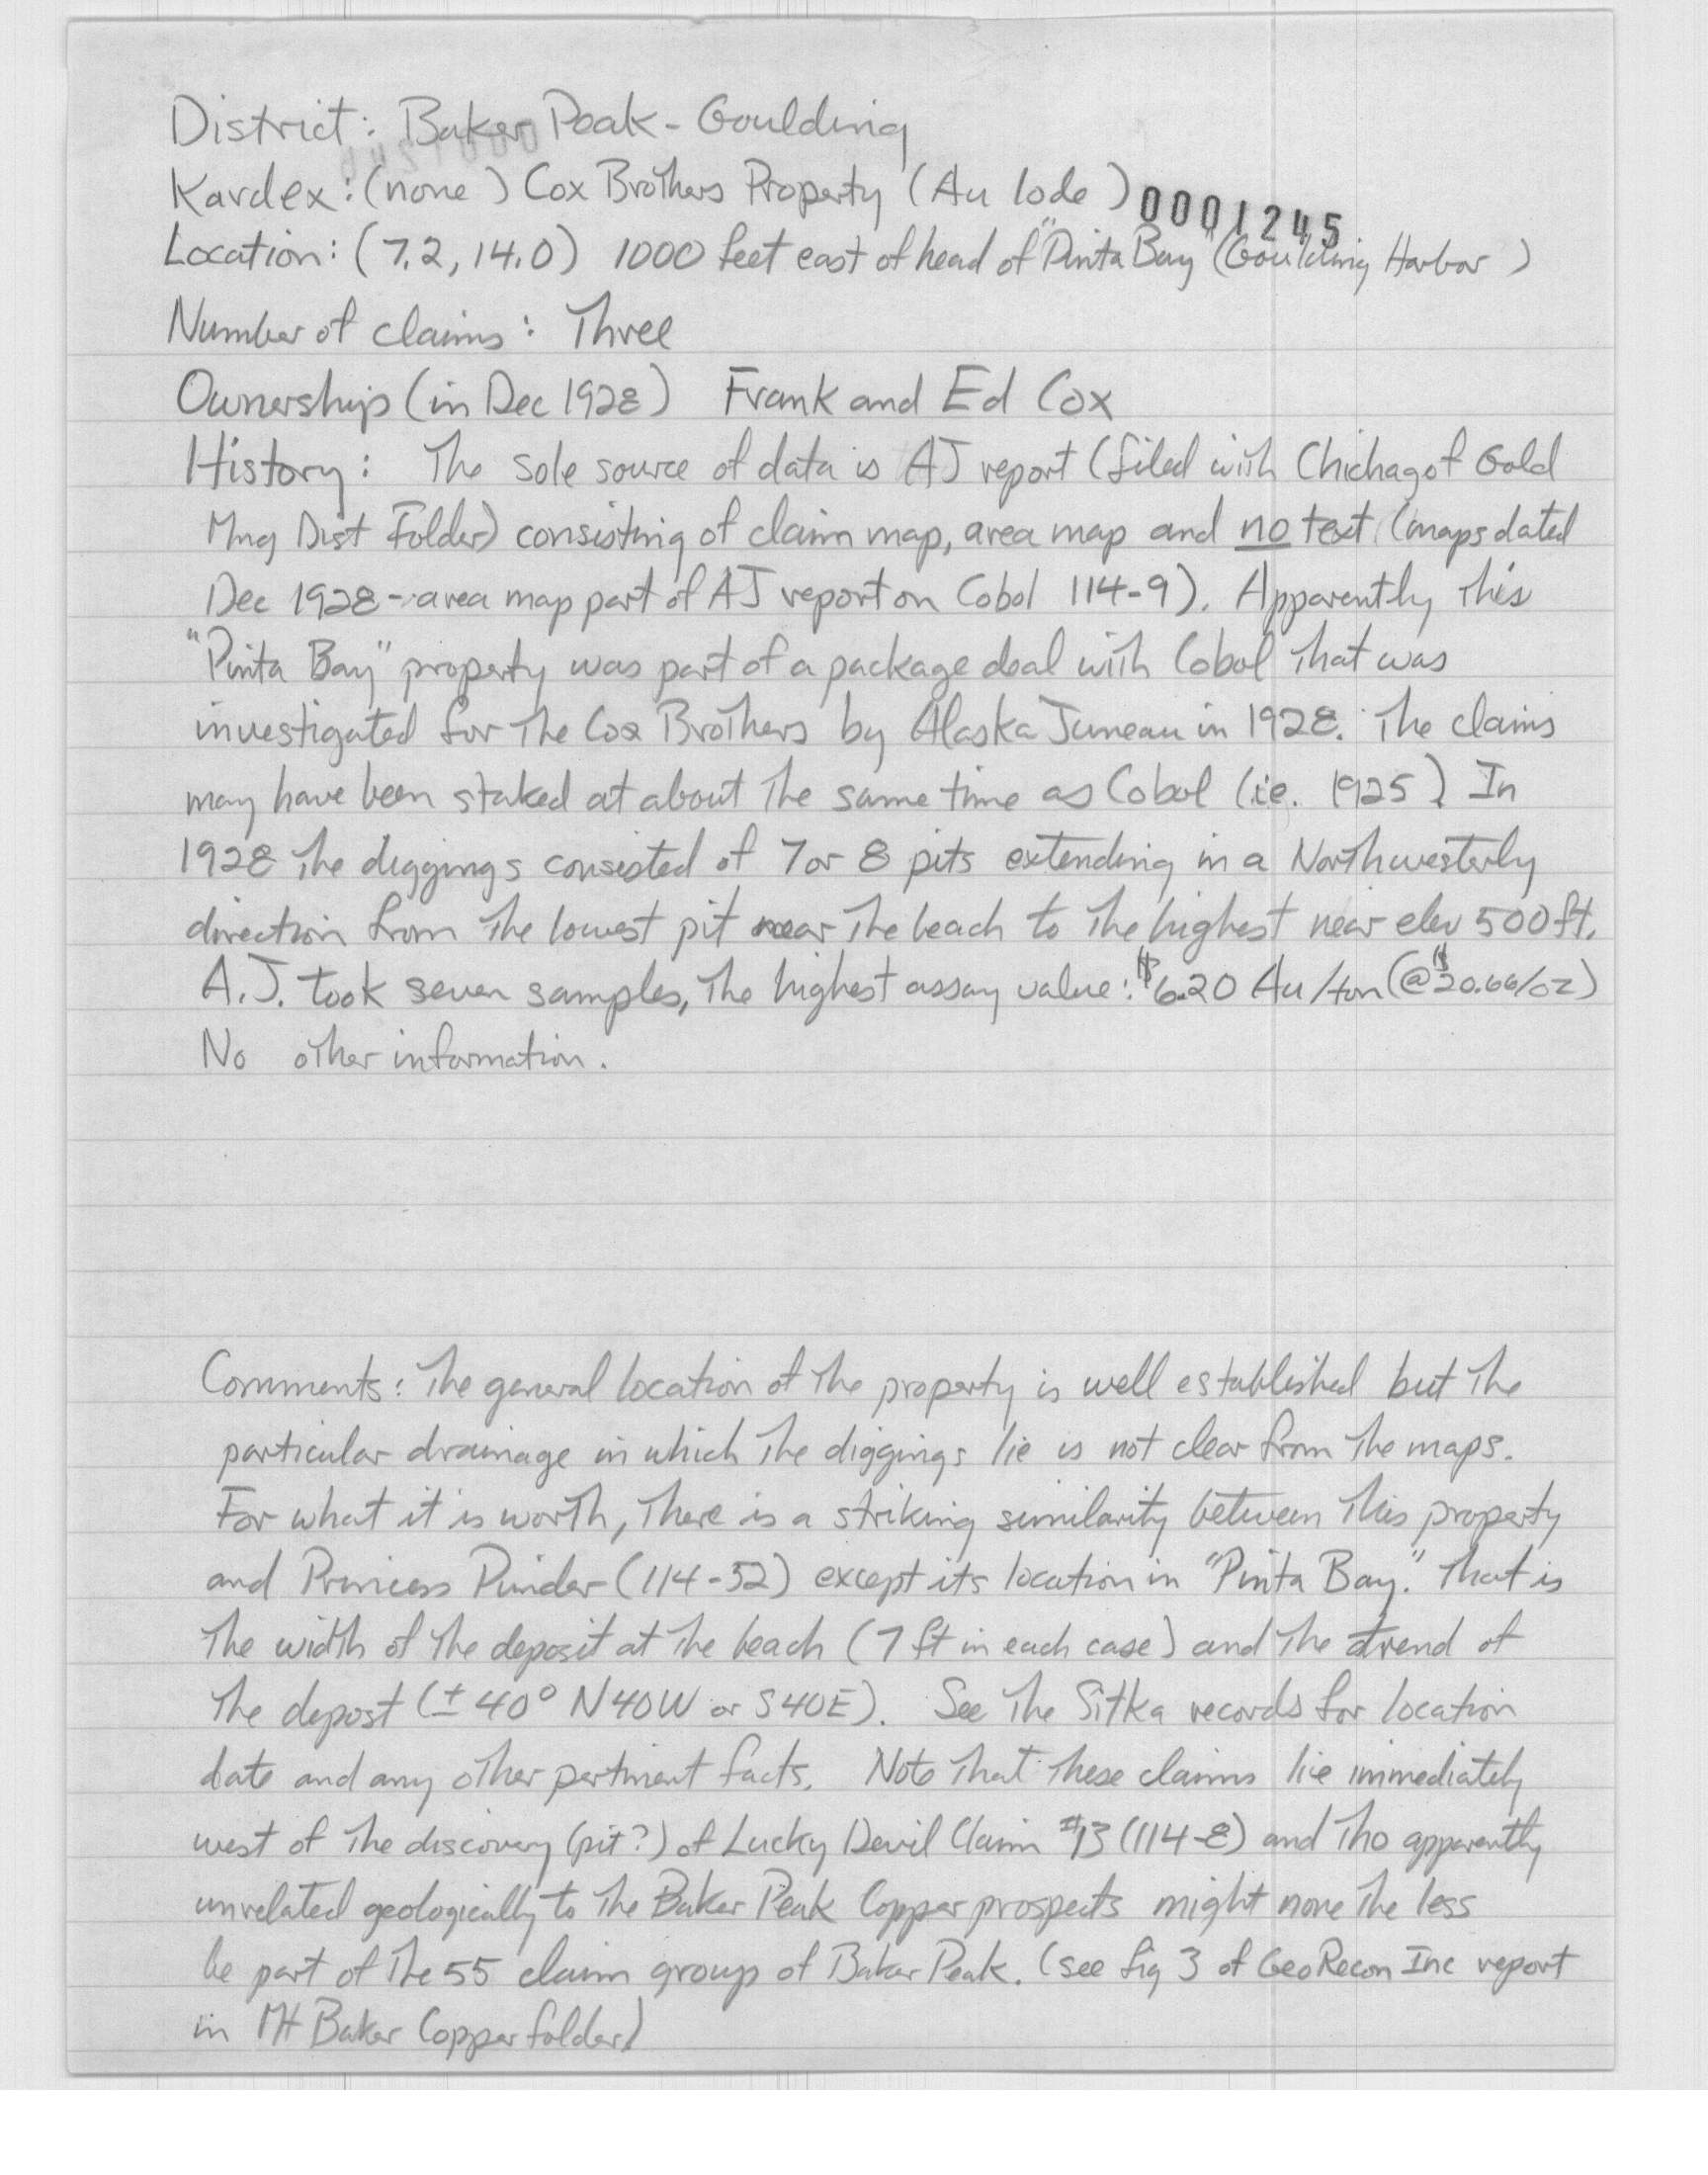 District: Baker Peak - Goulding
Kardex: (none) Cox Brothers Property (Au lode) 0001245
Location: (7.2, 14.0) 1000 feet east of head of "Pinta Bay" (Goulding Harbor)
Number of claims: Three
Ownership (in Dec 1928) Frank and Ed Cox
History: The sole source of data is AJ report (filed with Chichagof Gold
Mng Dist Folder) consisting of claim map, area map and no text (maps dated
Dec 1928 - area map part of AJ report on Cobol 114-9). Apparently this
"Pinta Bay" property was part of a package deal with Cobol that was
investigated for the Cox Brothers by Alaska Juneau in 1928. The claims
may have been staked at about the same time as Cobol (i.e. 1925) In
1928 the diggings consisted of 7 or 8 pits extending in a Northwesterly
direction from the lowest pit near the beach to the highest near elev 500 ft.
A.J. took seven samples, the highest assay value: $6.20 Au/ton (@ $20.66/oz)
No other information.
Comments: The general location of the property is well established but the
particular drainage in which the diggings lie is not clear from the maps.
For what it is worth, there is a striking similarity between this property
and Princess Pinder (114-52) except its location in "Pinta Bay." That is
the width of the deposit at the beach (7 ft in each case) and the trend of
the depost (± 40° N40W or S40E). See the Sitka records for location
date and any other pertinent facts. Note that these claims lie immediately
west of the discovery (pit?) of Lucky Devil Claim #13 (114-8) and tho apparently
unrelated geologically to the Baker Peak Copper prospects might none the less
be part of the 55 claim group of Baker Peak. (see fig 3 of GeoRecon Inc report
in Mt Baker Copper folder)